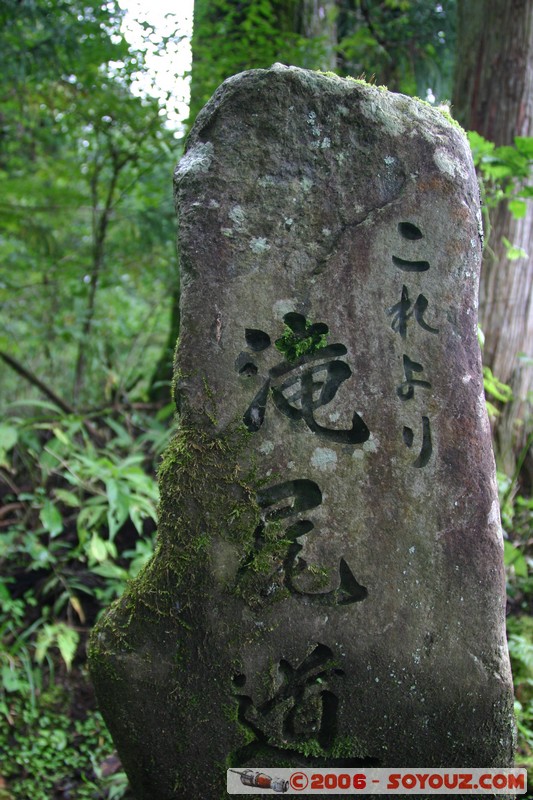 これより
滝尾道
© 2006 - SOYOUZ.COM